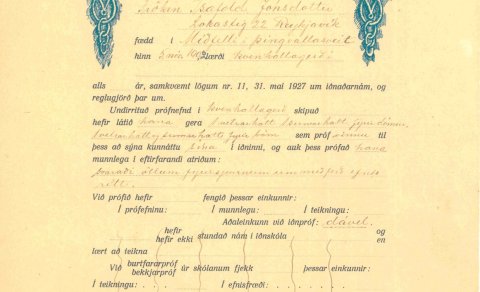 Fröken Ísafold Jónsdóttir
Lokastíg 22 Reykjavík
fædd í Miðfelli í Þingvallasveit
hinn lærði kvenhattagerð
alls ár, samkvæmt lögum nr. 11, 31. maí 1927 um iðnaðarnám, og
reglugjörð þar um.
Undirrituð prófnefnd í kvenhattagerð skipuð
hefir látið hana gera vetrarhatt sumarhatt fyrir dömur,
vetrarhatt sumarhatt fyrir börn sem próf til
þess að sýna kunnáttu sína í iðninni, og auk þess prófað hana
munnlega í eftirfarandi atriðum:
svaraði öllum fyrirspurnum um
rétt.
Við próf hefir fengið þessar einkunnir:
Í prófefninu: Í munnlegu: Í teikningu:
Aðaleinkunn við iðnpróf: dável
hefir
hefir ekki stundað nám í iðnskóla og en
lært að teikna
Við burtfararpróf
bekkjarpróf úr skólanum fjekk þessar einkunnir:
Í teikningu: Í efnisfræði: